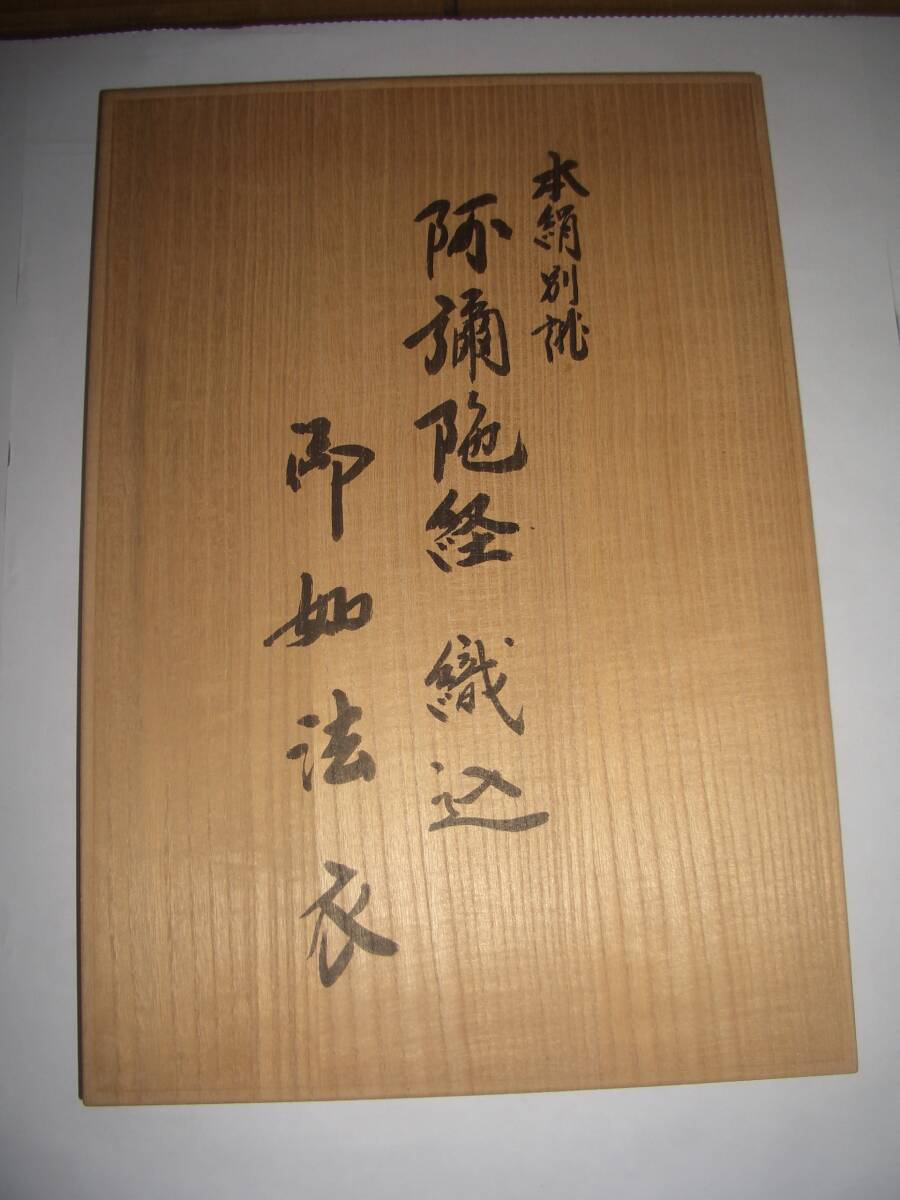 本絹別誂
阿彌陀経 織込
御如法衣